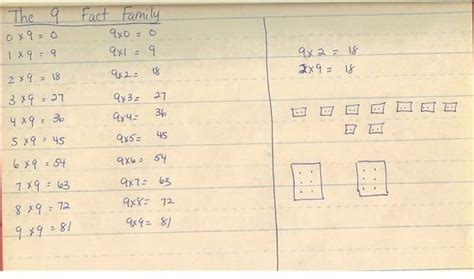 The 9 Fact Family
0 x 9 = 0 9x0 = 0
1 x 9 = 9 9x1 = 9
2 x 9 = 18 9x2 = 18
3 x 9 = 27 9x3 = 27
4 x 9 = 36 9x4 = 36
5 x 9 = 45 9x5 = 45
6 x 9 = 54 9x6 = 54
7 x 9 = 63 9x7 = 63
8 x 9 = 72 9x8 = 72
9 x 9 = 81 9x9 = 81
9 x 2 = 18
2 x 9 = 18